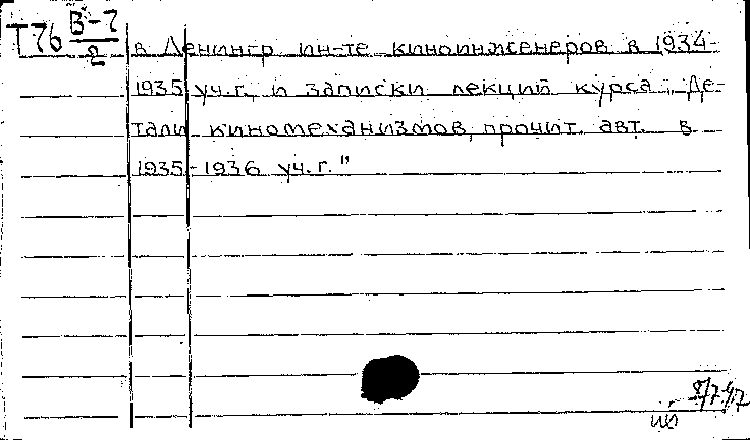 Т76 В-7
2
в Ленингр ин-те киноинженеров в 1934-
1935 уч.г. и записки лекций курса „Де-
тали киномеханизмов, прочит. авт. в
1935-1936 уч.г."